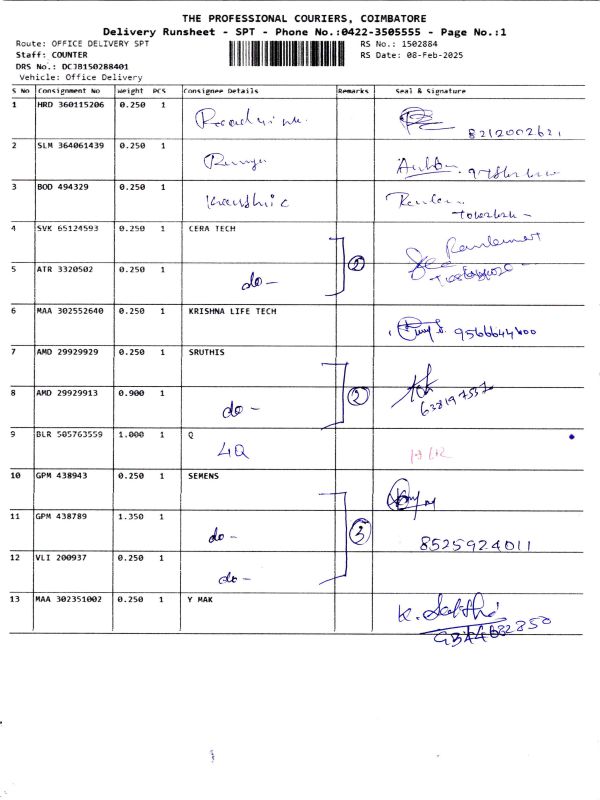 THE PROFESSIONAL COURIERS, COIMBATORE
Delivery Runsheet - SPT - Phone No.:0422-3505555 - Page No.:1
Route: OFFICE DELIVERY SPT RS No.: 1502884
Staff: COUNTER RS Date: 08-Feb-2025
DRS No.: DCJB150288401
Vehicle: Office Delivery
S No Consignment No Weight PCS Consignee Details Remarks Seal & Signature
1 HRD 360115206 0.250 1
8212002621
2 SLM 364061439 0.250 1
3 BOD 494329 0.250 1
4 SVK 65124593 0.250 1 CERA TECH
5 ATR 3320502 0.250 1 do- 2
6 MAA 302552640 0.250 1 KRISHNA LIFE TECH
9566644600
7 AMD 29929929 0.250 1 SRUTHIS
8 AMD 29929913 0.900 1 do- 2
9 BLR 505763559 1.000 1 Q
10 GPM 438943 0.250 1 SEMENS
11 GPM 438789 1.350 1 do- 3 8525924011
12 VLI 200937 0.250 1 do-
13 MAA 302351002 0.250 1 Y MAK